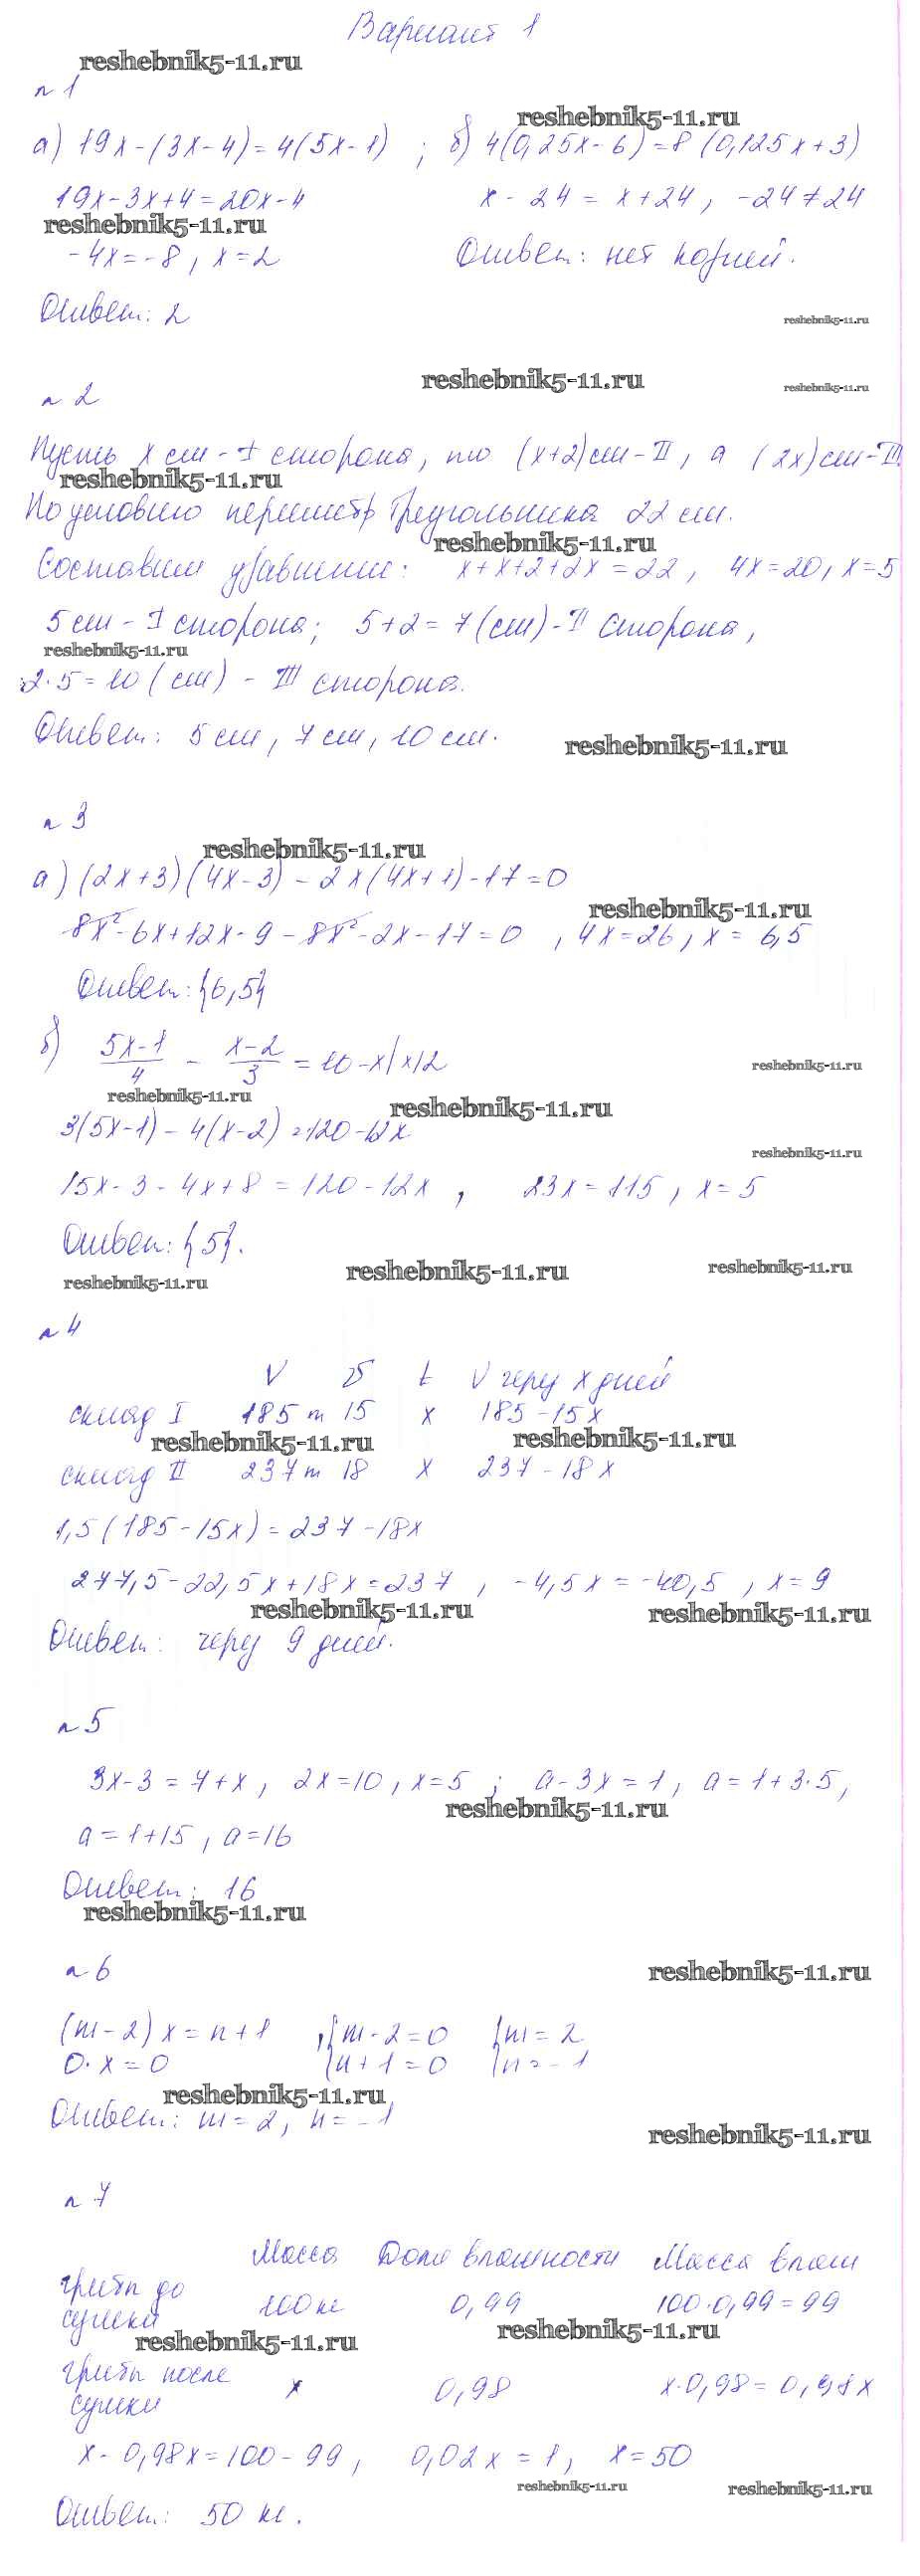 Вариант 1
reshebnik5-11.ru
№ 1
reshebnik5-11.ru
а) 19x-(3x-4)=4(5x-1) ; б) 4(0,25x-6)=8(0,125x+3)
19x-3x+4=20x-4 x-24=x+24, -24≠24
reshebnik5-11.ru
-4x=-8, x=2 Ответ: нет корней.
Ответ: 2
reshebnik5-11.ru
reshebnik5-11.ru
reshebnik5-11.ru
№ 2
Пусть x см - I сторона, то (x+2)см - II, а (2x)см - III.
reshebnik5-11.ru
По условию периметр треугольника 22 см.
reshebnik5-11.ru
Составим уравнение: x+x+2+2x=22, 4x=20, x=5
5 см - I сторона; 5+2=7(см) - II сторона,
reshebnik5-11.ru
2·5=10(см) - III сторона.
Ответ: 5 см, 7 см, 10 см.
reshebnik5-11.ru
№ 3
reshebnik5-11.ru
а) (2x+3)(4x-3)-2x(4x+1)-17=0
reshebnik5-11.ru
8x²-6x+12x-9-8x²-2x-17=0, 4x=26, x=6,5
Ответ: {6,5}
б) (5x-1)/4 - (x-2)/3 = 10-x |x12
reshebnik5-11.ru
reshebnik5-11.ru
reshebnik5-11.ru
3(5x-1)-4(x-2)=120-12x
reshebnik5-11.ru
15x-3-4x+8=120-12x, 23x=115, x=5
Ответ: {5}.
reshebnik5-11.ru reshebnik5-11.ru reshebnik5-11.ru
№ 4
V υ t V через x дней
склад I 185 т 15 x 185-15x
reshebnik5-11.ru reshebnik5-11.ru
склад II 237 т 18 x 237-18x
1,5(185-15x)=237-18x
277,5-22,5x+18x=237, -4,5x=-40,5, x=9
reshebnik5-11.ru reshebnik5-11.ru
Ответ: через 9 дней.
№ 5
3x-3=7+x, 2x=10, x=5; a-3x=1, a=1+3·5,
reshebnik5-11.ru
a=1+15, a=16
Ответ: 16
reshebnik5-11.ru
№ 6
reshebnik5-11.ru
(m-2)x=n+1, {m-2=0 {m=2
0·x=0 {n+1=0 {n=-1
reshebnik5-11.ru
Ответ: m=2, n=-1
reshebnik5-11.ru
№ 7
Масса Доля влажности Масса влаги
грибы до
сушки 100 кг 0,99 100·0,99=99
reshebnik5-11.ru reshebnik5-11.ru
грибы после
сушки x 0,98 x·0,98=0,98x
x-0,98x=100-99, 0,02x=1, x=50
reshebnik5-11.ru reshebnik5-11.ru
Ответ: 50 кг.